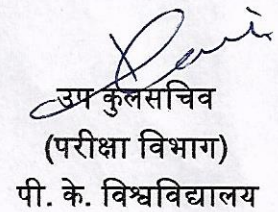 उप कुलसचिव
(परीक्षा विभाग)
पी. के. विश्वविद्यालय